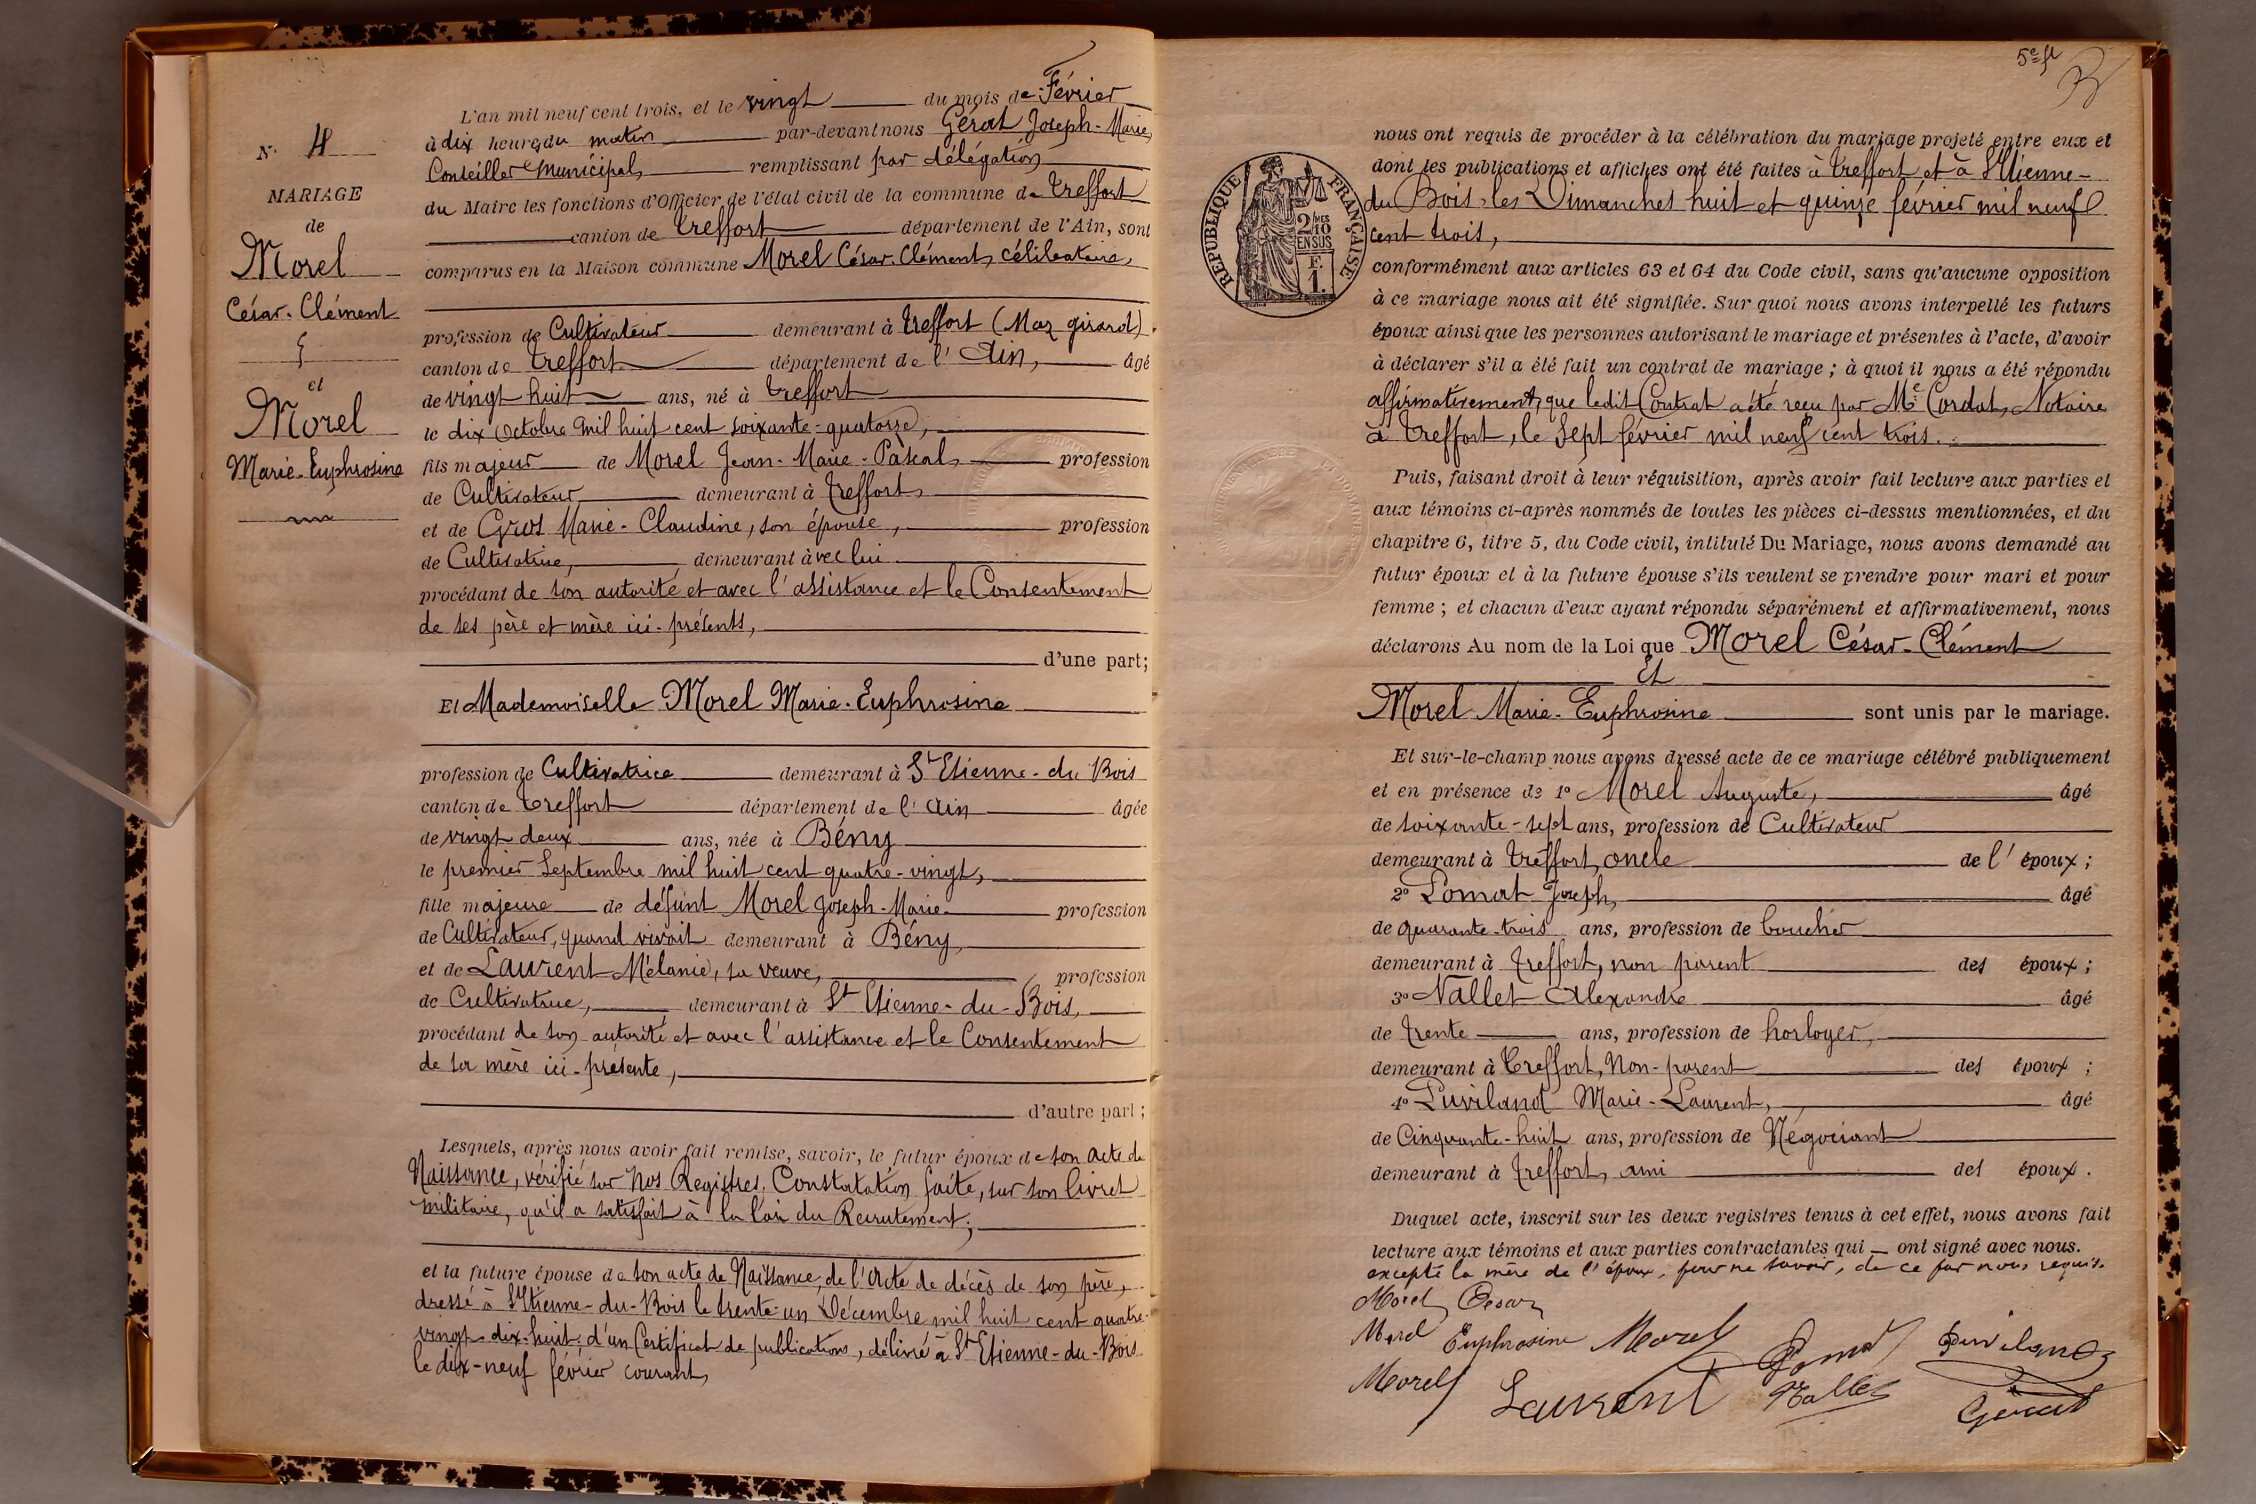 L'an mil neuf cent trois, et le vingt du mois de Février
à dix heures du matin par-devant nous Gérat Joseph-Marie,
Conseiller Municipal, remplissant par délégation
du Maire les fonctions d'Officier de l'état civil de la commune de Treffort
canton de Treffort département de l'Ain, sont
comparus en la Maison commune Morel César-Clément, célibataire,
profession de Cultivateur demeurant à Treffort (Maz girard),
canton de Treffort département de l'Ain, âgé
de vingt huit ans, né à Treffort
le dix Octobre mil huit cent soixante-quatorze,
fils majeur de Morel Jean-Marie-Pascal, profession
de Cultivateur demeurant à Treffort,
et de Gros Marie-Claudine, son épouse, profession
de Cultivatrice, demeurant avec lui
procédant de son autorité et avec l'assistance et le Consentement
de ses père et mère ici-présents,
d'une part;
Et Mademoiselle Morel Marie-Euphrosine
profession de Cultivatrice demeurant à St Etienne-du-Bois
canton de Treffort département de l'Ain âgée
de vingt deux ans, née à Bény
le premier Septembre mil huit cent quatre-vingt,
fille majeure de défunt Morel Joseph-Marie profession
de Cultivateur, quand vivait demeurant à Bény,
et de Laurent Mélanie, sa veuve, profession
de Cultivatrice, demeurant à St Etienne-du-Bois,
procédant de son autorité et avec l'assistance et le Consentement
de sa mère ici-présente,
d'autre part;
Lesquels, après nous avoir fait remise, savoir, le futur époux de son acte de
Naissance, vérifié sur nos Registres, Constatation faite, sur son livret
militaire, qu'il a satisfait à la loi du Recrutement;
et la future épouse de son acte de Naissance, de l'Acte de décès de son père,
dressé à St Etienne-du-Bois le trente-un Décembre mil huit cent quatre-
vingt-dix-huit; d'un Certificat de publications, délivré à St Etienne-du-Bois
le dix-neuf février courant,
N° 4
MARIAGE
de
Morel
César-Clément
et
Morel
Marie-Euphrosine
5e fl
nous ont requis de procéder à la célébration du mariage projeté entre eux et
dont les publications et affiches ont été faites à Treffort et à St Etienne-
du Bois, les Dimanches huit et quinze février mil neuf
cent trois,
REPUBLIQUE FRANÇAISE
2/10 MES
EN SUS
F.
1.
conformément aux articles 63 et 64 du Code civil, sans qu'aucune opposition
à ce mariage nous ait été signifiée. Sur quoi nous avons interpellé les futurs
époux ainsi que les personnes autorisant le mariage et présentes à l'acte, d'avoir
à déclarer s'il a été fait un contrat de mariage; à quoi il nous a été répondu
affirmativement, que ledit Contrat a été reçu par Me Cordat, Notaire
à Treffort, le sept février mil neuf cent trois.
Puis, faisant droit à leur réquisition, après avoir fait lecture aux parties et
aux témoins ci-après nommés de toutes les pièces ci-dessus mentionnées, et du
chapitre 6, titre 5, du Code civil, intitulé Du Mariage, nous avons demandé au
futur époux et à la future épouse s'ils veulent se prendre pour mari et pour
femme; et chacun d'eux ayant répondu séparément et affirmativement, nous
déclarons Au nom de la Loi que Morel César-Clément
Et
Morel Marie-Euphrosine sont unis par le mariage.
Et sur-le-champ nous avons dressé acte de ce mariage célébré publiquement
et en présence de 1° Morel Auguste, âgé
de soixante-sept ans, profession de Cultivateur
demeurant à Treffort, oncle de l'époux;
2° Pomat Joseph, âgé
de quarante-trois ans, profession de boucher
demeurant à Treffort, non parent des époux;
3° Nallet Alexandre âgé
de trente ans, profession de horloger,
demeurant à Treffort, Non-parent des époux;
4° Puviland Marie-Laurent, âgé
de Cinquante-huit ans, profession de Négociant
demeurant à Treffort, ami des époux.
Duquel acte, inscrit sur les deux registres tenus à cet effet, nous avons fait
lecture aux témoins et aux parties contractantes qui ont signé avec nous.
excepté la mère de l'époux, pour ne savoir, de ce par nous requis.
Morel César
Morel Euphrosine Morel Pomat Puviland
Morel Laurent Nallet Gérat